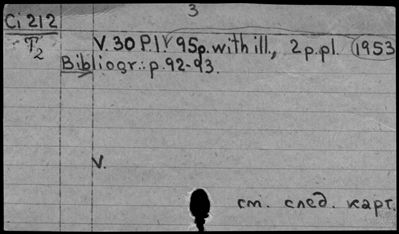 3
Ci 212
T2
V. 30 P. IV 95p. with ill., 2 p. pl. 1953
Bibliogr.: p. 92-93.
V.
см. след. карт.